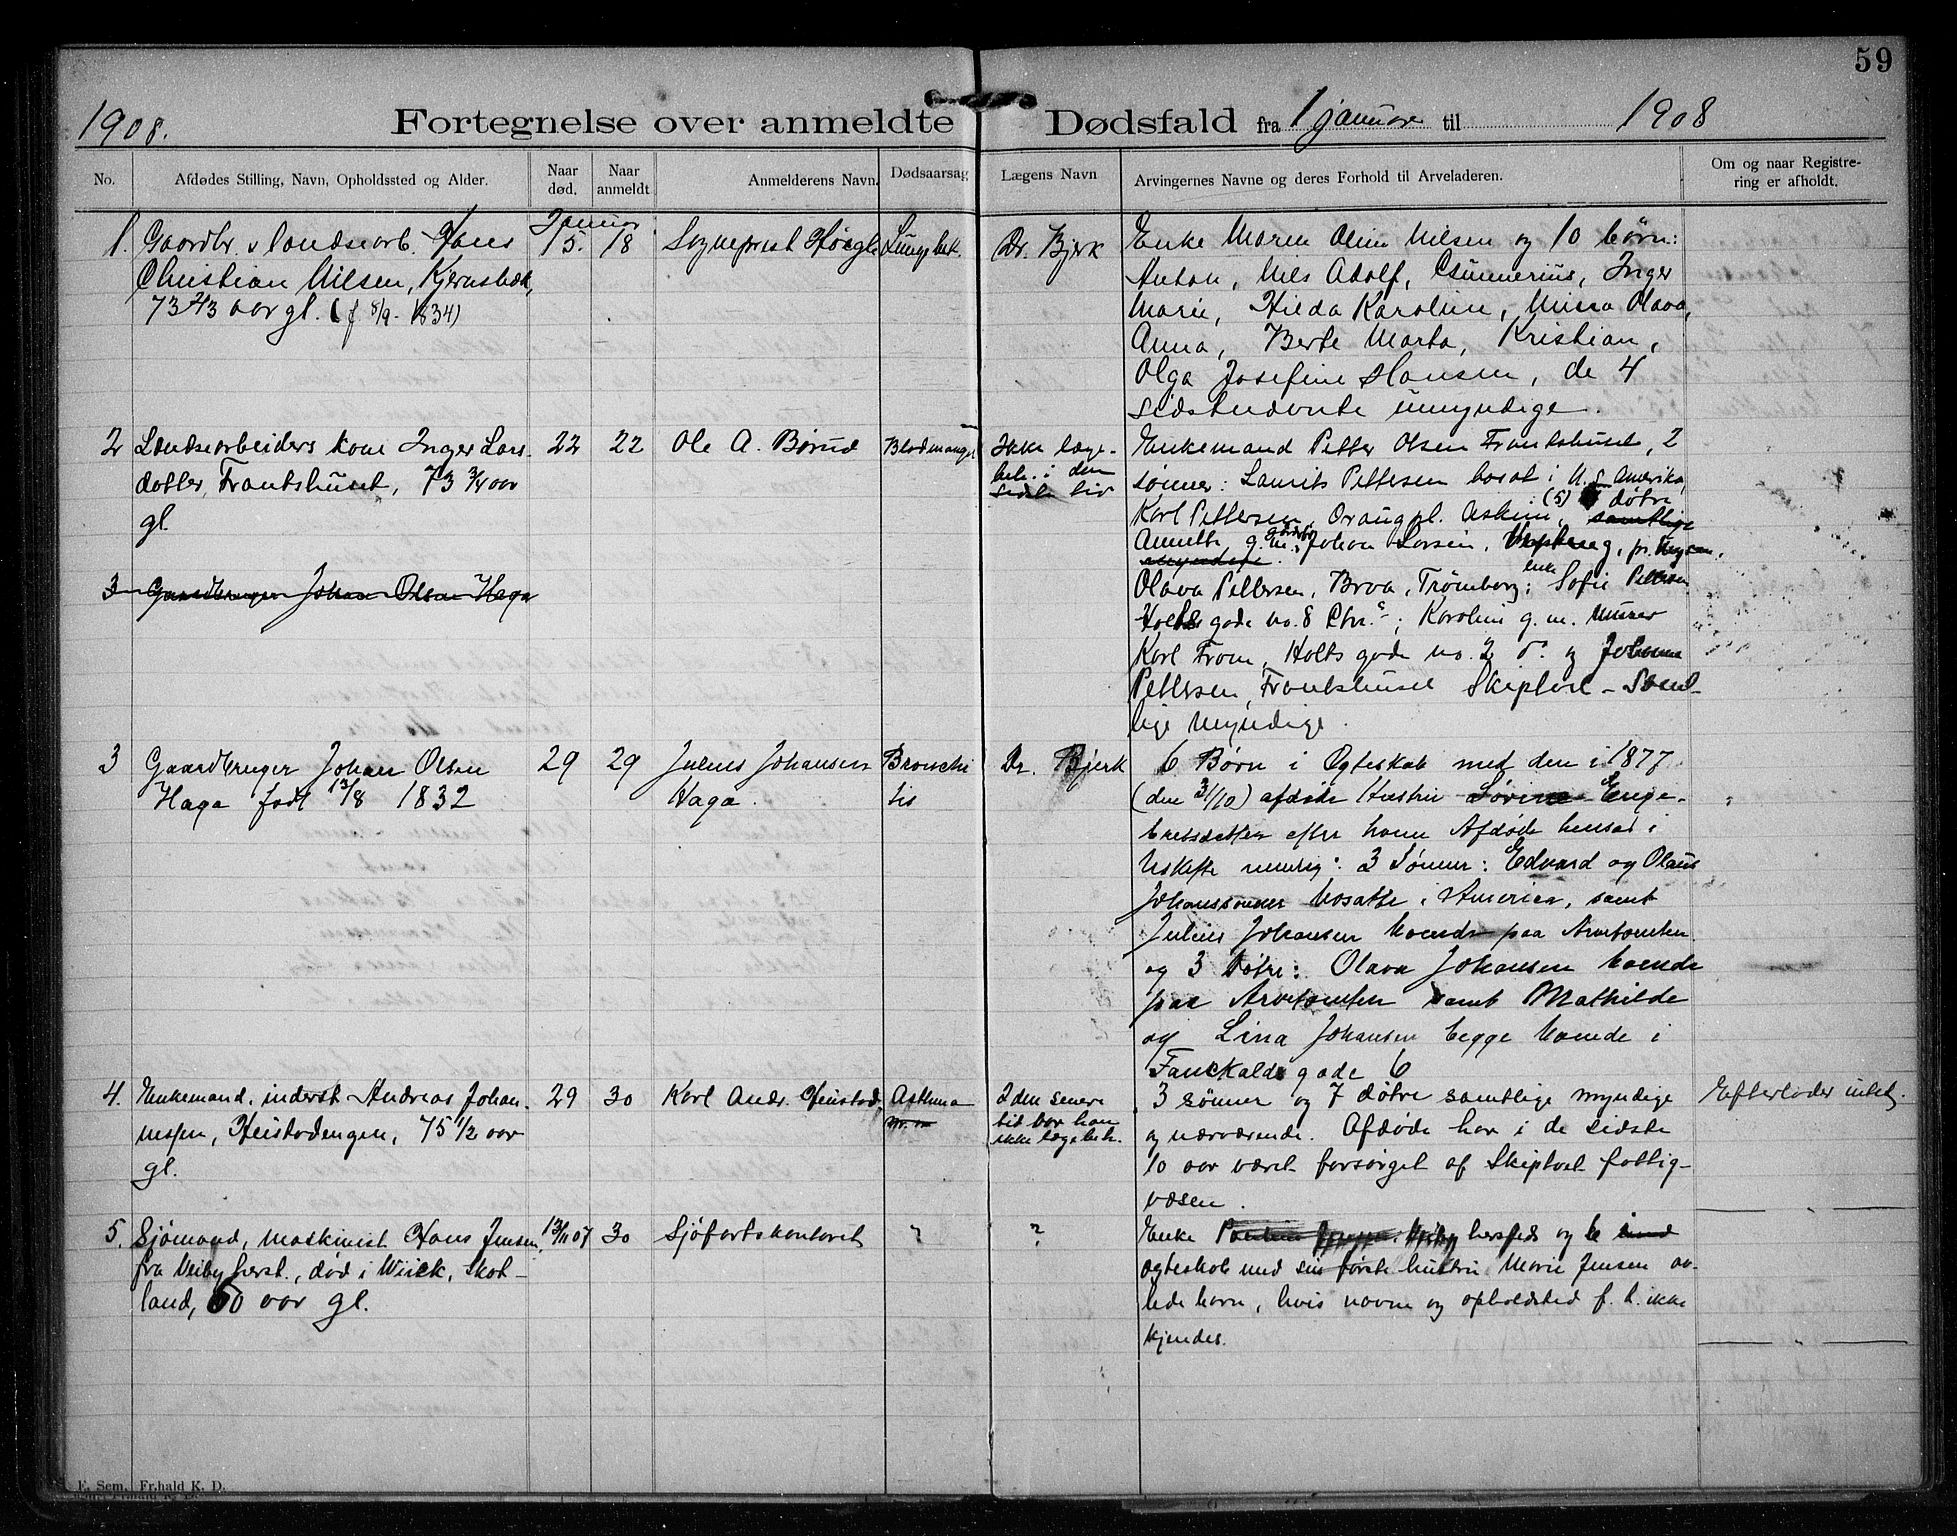 59
1908.
Fortegnelse over anmeldte Dødsfald fra 1 januar til 1908
No.
Afdødes Stilling, Navn, Opholdssted og Alder.
Naar død.
Naar anmeldt
Anmelderens Navn.
Dødsaarsag
Lægens Navn
Arvingernes Navne og deres Forhold til Arveladeren.
Om og naar Registrering er afholdt.
Januar
1. Gaardbr. Hans
Christian Nilsen, Kjernsbæk,
73 aar gl. (f 8/9 - 1834)
15. 18 Sogneprest
Dr. Bjerk
Enke Maren Oline Nilsen og 10 børn:
Anton, Nils Adolf, Inger
Marie, Hilda Karoline, Olava,
Anna, Berte Marta, Kristian,
Olga Josefine Hansen, de 4
sidstnævnte umyndige.
2 Landsearbeiders kone Inger Lars
datter, Frantshuset, 73 3/4 aar
gl.
22 22 Ole A. Børud Blodmangel
Ikke læge-
beh. i den
sidste tid
Enkemand Petter Olsen Frantshuset, 2
sønner: Laurits Pettersen bosat i N. S. Amerika,
Karl Pettersen, Askim, (5) døtre
samtlige
Annette g. m. gaardbr. Johan Larsen, pr. Mysen,
myndige.
Olava Pettersen, Broa, Trømborg; enke Sofie Pettersen
Holts gade no. 8 Chr.a; Karoline g. m. murer
Karl From, Holts gade no. 2 og Johanne
Pettersen, Frantshuset Skiptvet - Samt-
lige myndige.
3 Gaardbruger Johan Olsen Haga
3 Gaardbruger Johan Olsen
Haga født 13/8 1832
29 29 Julius Johansen
Haga.
Bronchi
tis
Dr. Bjerk
6 Børn i Ægteskab med den i 1877
(den 31/10) afdøde Hustru Sørine Enge-
bretsdatter efter hvem Afdøde hensad i
Uskifte nemlig: 3 Sønner: Edvard og Olaus
Johanssønner bosatte i Amerika, samt
Julius Johansen boende paa Arvetomten
og 3 Døtre: Olava Johansen boende
paa Arvetomten samt Mathilde
og Lina Johansen begge boende i
gade 6
4. Enkemand, inderst Andreas Johan-
nessen, Heistadengen, 75 1/2 aar
gl.
29 30 Karl Andr. Heistad, Asthma
I den senere
tid var han
ikke lægebeh.
3 sønner og 7 døtre samtlige myndige
og nærværende. Afdøde har i de sidste
10 aar været forsørget af Skiptvet fattig-
væsen.
Efterlader intet.
5. Sjømand, maskinist Hans Jensen,
fra Veiby herst., død i Wiick, Skot-
land, 60 aar gl.
13/11 07 30 Sjøfartskontoret ? ?
Enke og 6
ægteskab med sin første hustru Marie Jensen av-
lede barn, hvis navne og opholdsted f. t. ikke
kjendes.
F. Sem, Fr.hald K. D.